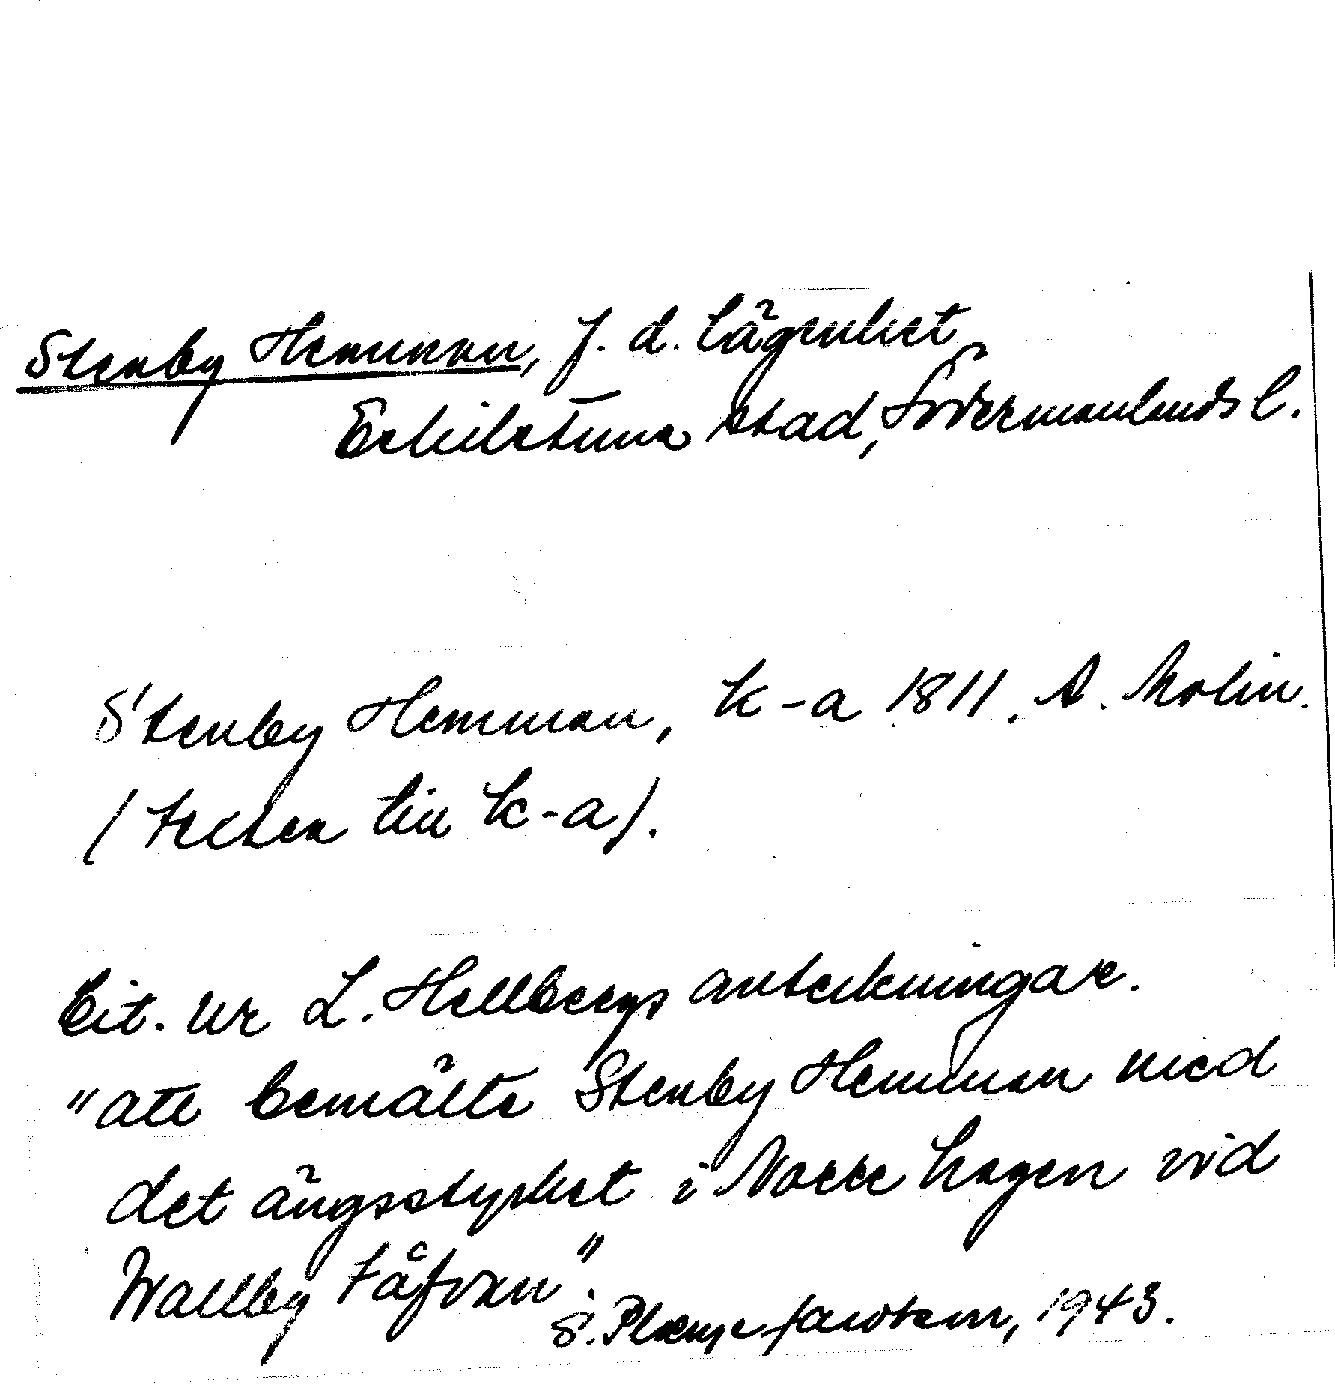 Stenby Hemman, f. d. lägenhet
Eskilstuna stad, Södermanlands l.
Stenby Hemman, k-a 1811. A. Molin.
(texten till k-a).
Cit. ur L. Hellbergs anteckningar.
"att bemälte Stenby Hemman med
det ängsstycket i Norre hagen vid
Wallby Tåfvan".
S. 1943.